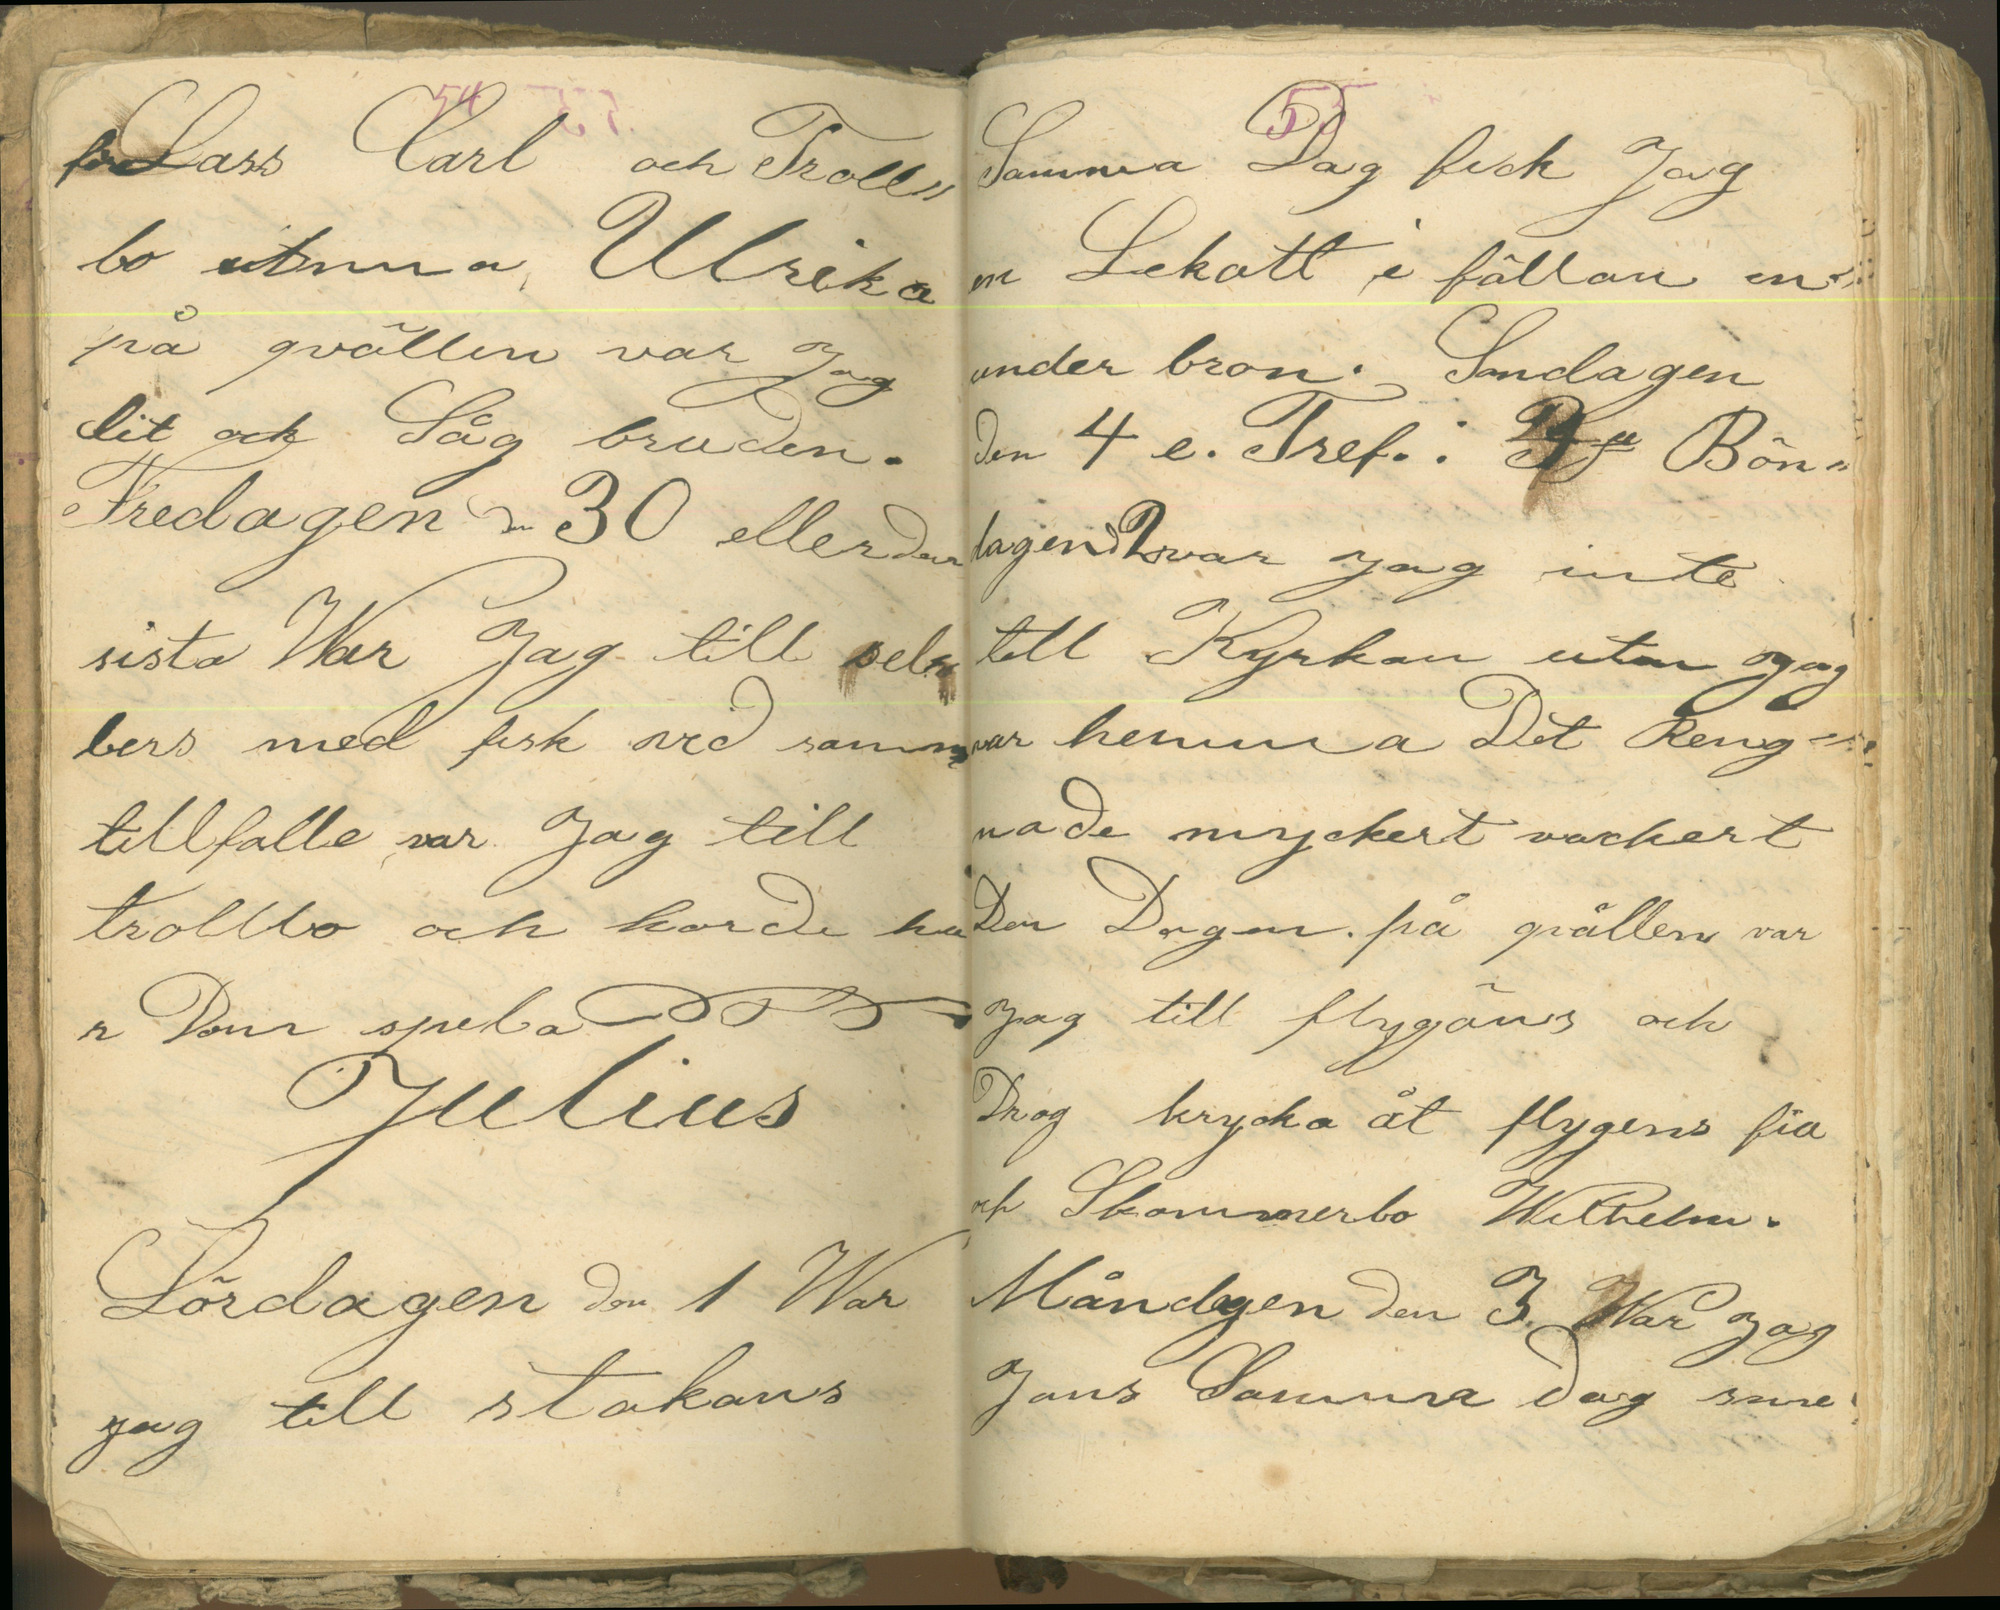 för Lars Carl och Troll„
bo utmma, Ulrika
på qvällen var Jag
dit och Såg bruden.
Fredagen den 30 eller den
sista War Jag till sels
bers med fisk ved samma
tillfalle var Jag till
trollbo och horde hu
r Dom spela
Julius
Lördagen den 1 War
jag till stakans
55
Samma Dag fick Jag
en Lekatt i fällan en
under bron. Sondagen
den 4 e. Tref.: Bön„
dagen d 2 var jag inte
till Kyrkan utan jag
var hemma Det Reng„
nade myckert vackert
Den Dagen. på qvällen var
Jag till flygäns och
Drog krycka åt flygens fia
och Skommerbo Wilhelm.
Måndagen den 3. War Jag
Jans Samma Dag sme